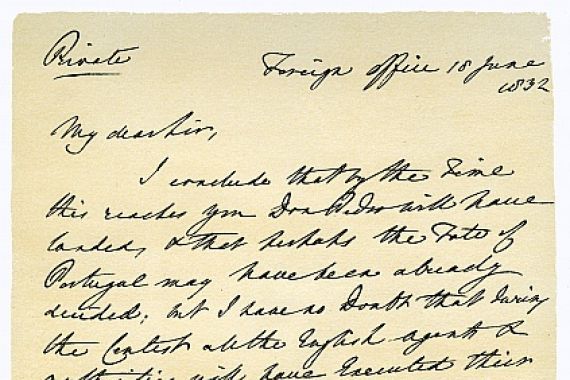 Private
Foreign office 18 June
1832
My dear Sir,
I conclude that by the Time
this reaches you Don Pedro will have
landed, & that perhaps the Fate of
Portugal may have been already
decided; but I have no Doubt that during
the Contest all the English agents &
authorities will have Executed their